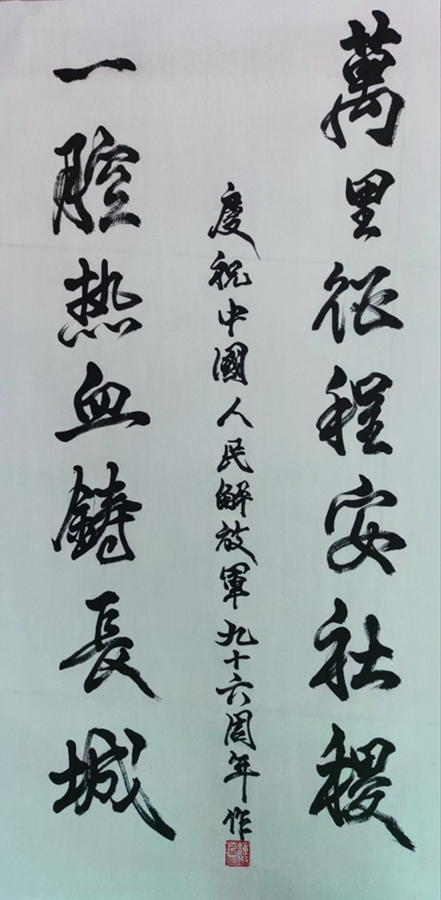 萬里征程安社稷
慶祝中國人民解放軍九十六周年作
一腔热血鋳長城